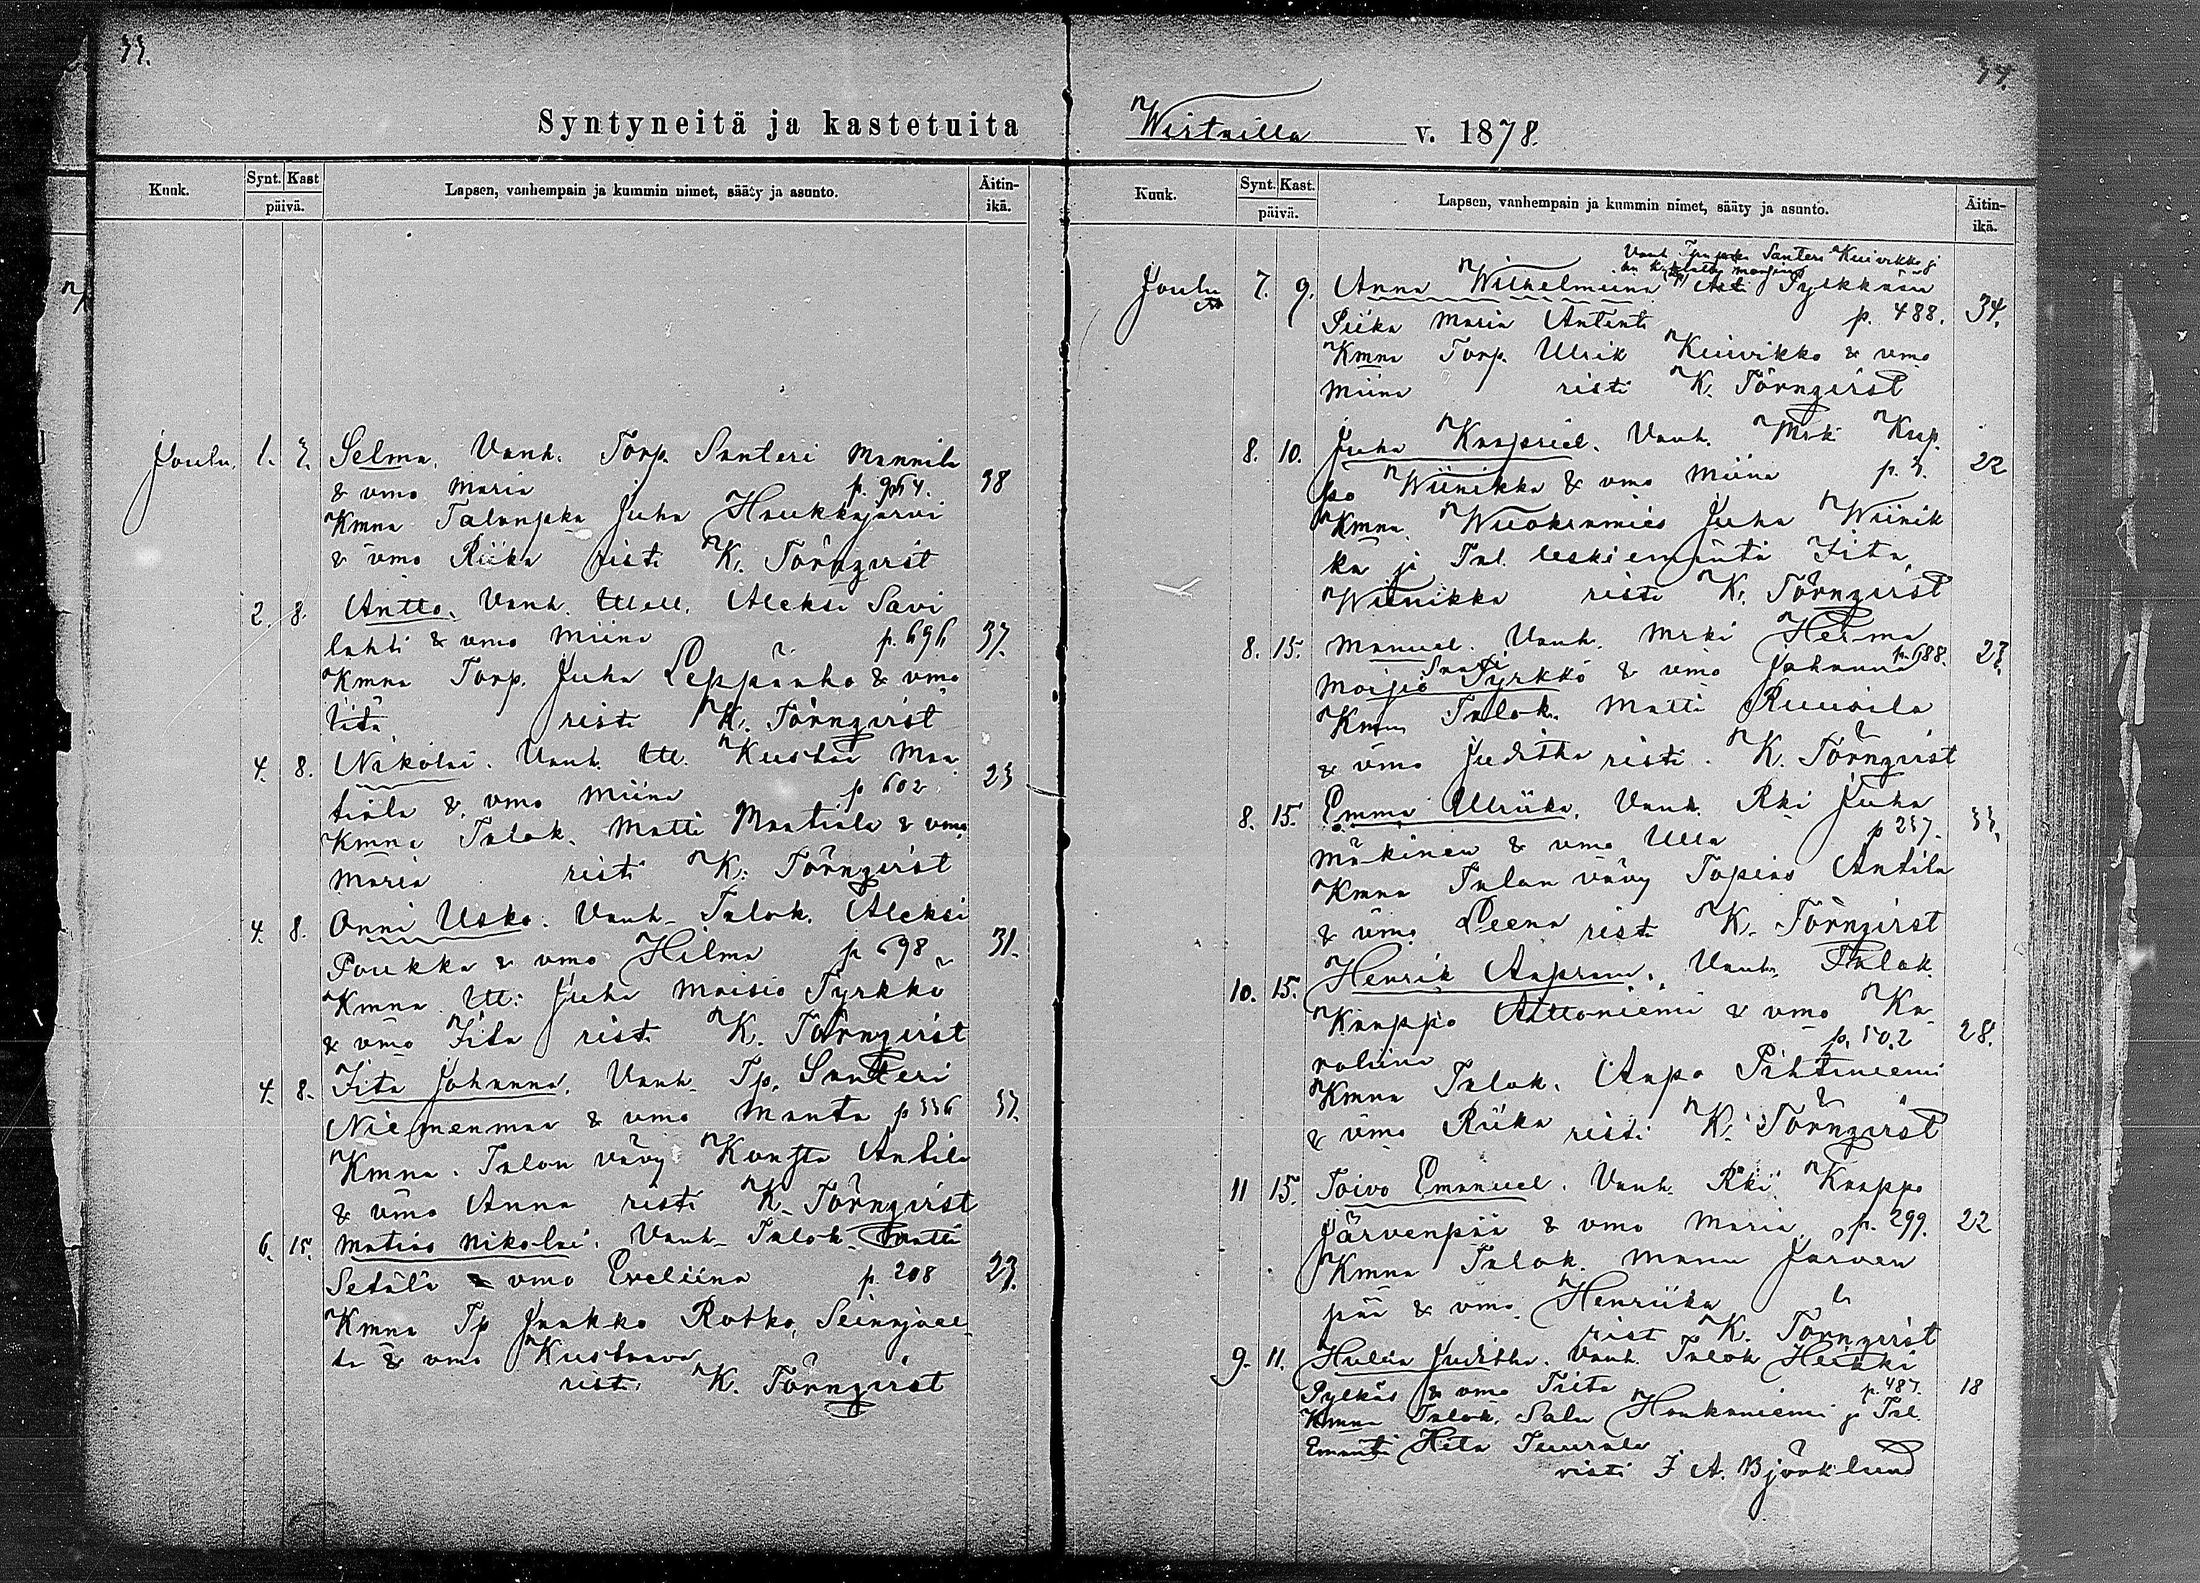 33.
Syntyneitä ja kastetuita
Kuuk.
Synt. Kast
päivä.
Lapsen, vanhempain ja kummin nimet, sääty ja asunto.
Äitin-
ikä.
Joulu. 1. 3. Selma. Vanh. Torp. Santeri Mannila
& vmo Maria 38
Kmna Talonpka Juha Haukkajärvi
& vmo Riika risti K. Törnqvist
2. 8. Antto. Vanh. Aleksi Savi
lahti & vmo Miina p. 696 37.
Kmna Torp. Juha Leppänho & vmo
risti K. Törnqvist
4. 8. Nikolai. Vanh. Itl. Kustaa Maa
tiala & vmo Miina p 602. 23
Kmna Talok. Matti Maatiala & vmo
Maria risti K. Törnqvist
4. 8. Onni Usko. Vanh. Talok. Aleksi
Poukka & vmo Hilma p 698 31.
Kmna Itl. Juha Maisio Tyrkkö
& vmo Iita risti K. Törnqvist
4. 8. Iita Johanna. Vanh. Tp. Santeri
Niemenmaa & vmo Manta p 336 37.
Kmna. Talon vävy Konsta Antila
& vmo Anna risti K. Törnqvist
6. 15. Matias Nikolai. Vanh. Talok. Antti
Setälä & vmo Eveliina p. 208 27.
Kmna Tp Jaakko Rotko, Seinäjoel
ta & vmo Kustaava
risti K. Törnqvist
34.
Wirtailla v. 1878.
Kuuk.
Synt. Kast.
päivä.
Lapsen, vanhempain ja kummin nimet, sääty ja asunto.
Äitin-
ikä.
Santeri Kuivikko j
Joulu 7. 9. Anna Wilhelmiina Pylkkäsen
Siika Maria p. 488. 34.
Kmna Torp. Ulrik Kuivikko & vmo
Miina risti K. Törnqvist
8. 10. Juha Kaapriel. Vanh. Mrki Kap.
po Wiinikka & vmo Miina p. 3. 22
Kmna. Wuokramies Juha Wiinik
ka ja Tal. leskiemäntä Iita
Wiinikka risti K. Törnqvist
8. 15. Manuel. Vanh. Mrki Herma
Moisio Tyrkkö & vmo Johanna p. 688. 27.
Kmna Talok. Matti Ruusila
& vmo Juditha risti. K. Törnqvist
8. 15. Emma Ulriika. Vanh. Rki Juha
Mäkinen & vmo Ulla p 237. 33.
Kmna Talon vävy Topias Antila
& vmo Leena risti K. Törnqvist
10. 15. Henrik Aapram. Vanh. Talok.
Kaappo Attoniemi & vmo Ka
roliina p. 502 28.
Kmna Talok. Aapo Pihtiniemi
& vmo Riika risti K. Törnqvist
11 15. Toivo Emanuel. Vanh. Rki Kaappo
Järvenpää & vmo Maria p. 299. 22
Kmna Talok. Manu Järven
pää & vmo Henriika
risti K. Törnqvist
9. 11. Hulda Juditha. Vanh. Talok Heikki
Pylkäs & vmo Iita p. 487. 18
Kmna Talok. Salu Honkaniemi ja Tal.
Emäntä Heta Tuurala
risti J A. Björklund